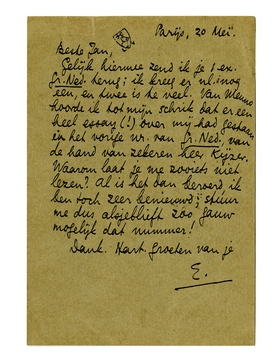 Parijs, 20 Mei.
Beste Jan,
Gelijk hiermee zend ik je 1 ex.
Gr. Ned. terug; ik kreeg er nl. nog
een, en twee is te veel. Van Menno
hoorde ik tot mijn schrik dat er een
heel essay (!) over mij had gestaan
in het vorige nr. van Gr. Ned., van
de hand van zekeren heer Kijzer.
Waarom laat je me zooiets niet
lezen? Al is het dan beroerd, ik
ben toch zeer benieuwd; stuur
me dus alsjeblieft zoo gauw
mogelijk dat nummer!
Dank. Hart. groeten van je
E.